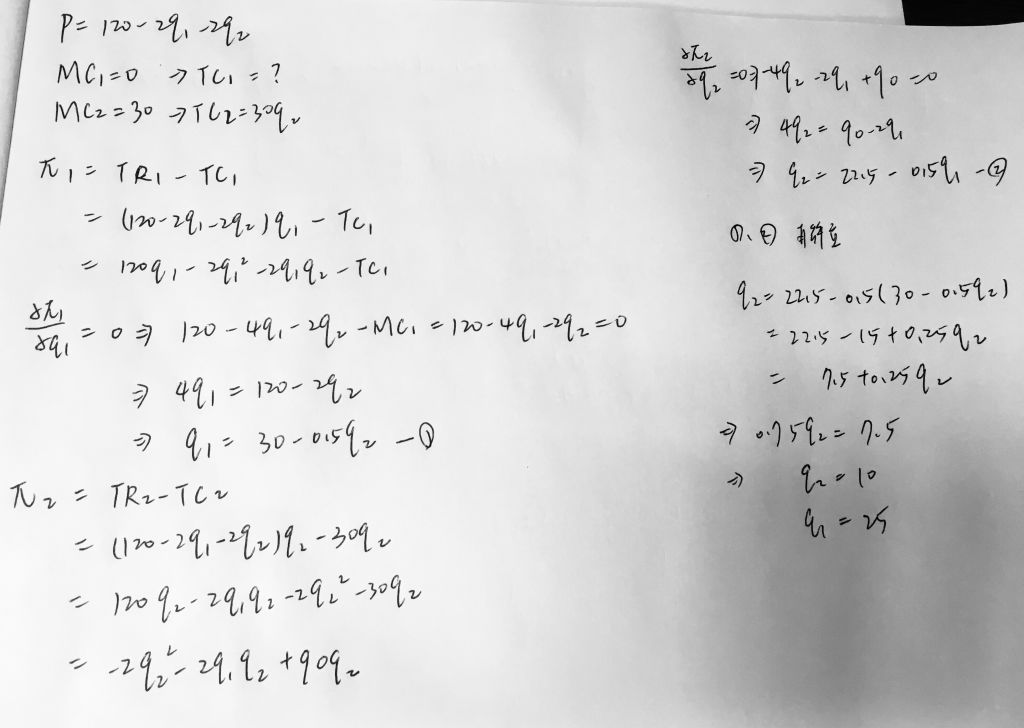 P = 120 - 2q₁ - 2q₂
MC₁ = 0 → TC₁ = ?
MC₂ = 30 → TC₂ = 30q₂
π₁ = TR₁ - TC₁
= (120 - 2q₁ - 2q₂)q₁ - TC₁
= 120q₁ - 2q₁² - 2q₁q₂ - TC₁
∂π₁/∂q₁ = 0 ⇒ 120 - 4q₁ - 2q₂ - MC₁ = 120 - 4q₁ - 2q₂ = 0
⇒ 4q₁ = 120 - 2q₂
⇒ q₁ = 30 - 0.5q₂ - ①
π₂ = TR₂ - TC₂
= (120 - 2q₁ - 2q₂)q₂ - 30q₂
= 120q₂ - 2q₁q₂ - 2q₂² - 30q₂
= -2q₂² - 2q₁q₂ + 90q₂
∂π₂/∂q₂ = 0 ⇒ -4q₂ - 2q₁ + 90 = 0
⇒ 4q₂ = 90 - 2q₁
⇒ q₂ = 22.5 - 0.5q₁ - ②
①、② 立
q₂ = 22.5 - 0.5(30 - 0.5q₂)
= 22.5 - 15 + 0.25q₂
= 7.5 + 0.25q₂
⇒ 0.75q₂ = 7.5
⇒ q₂ = 10
q₁ = 25